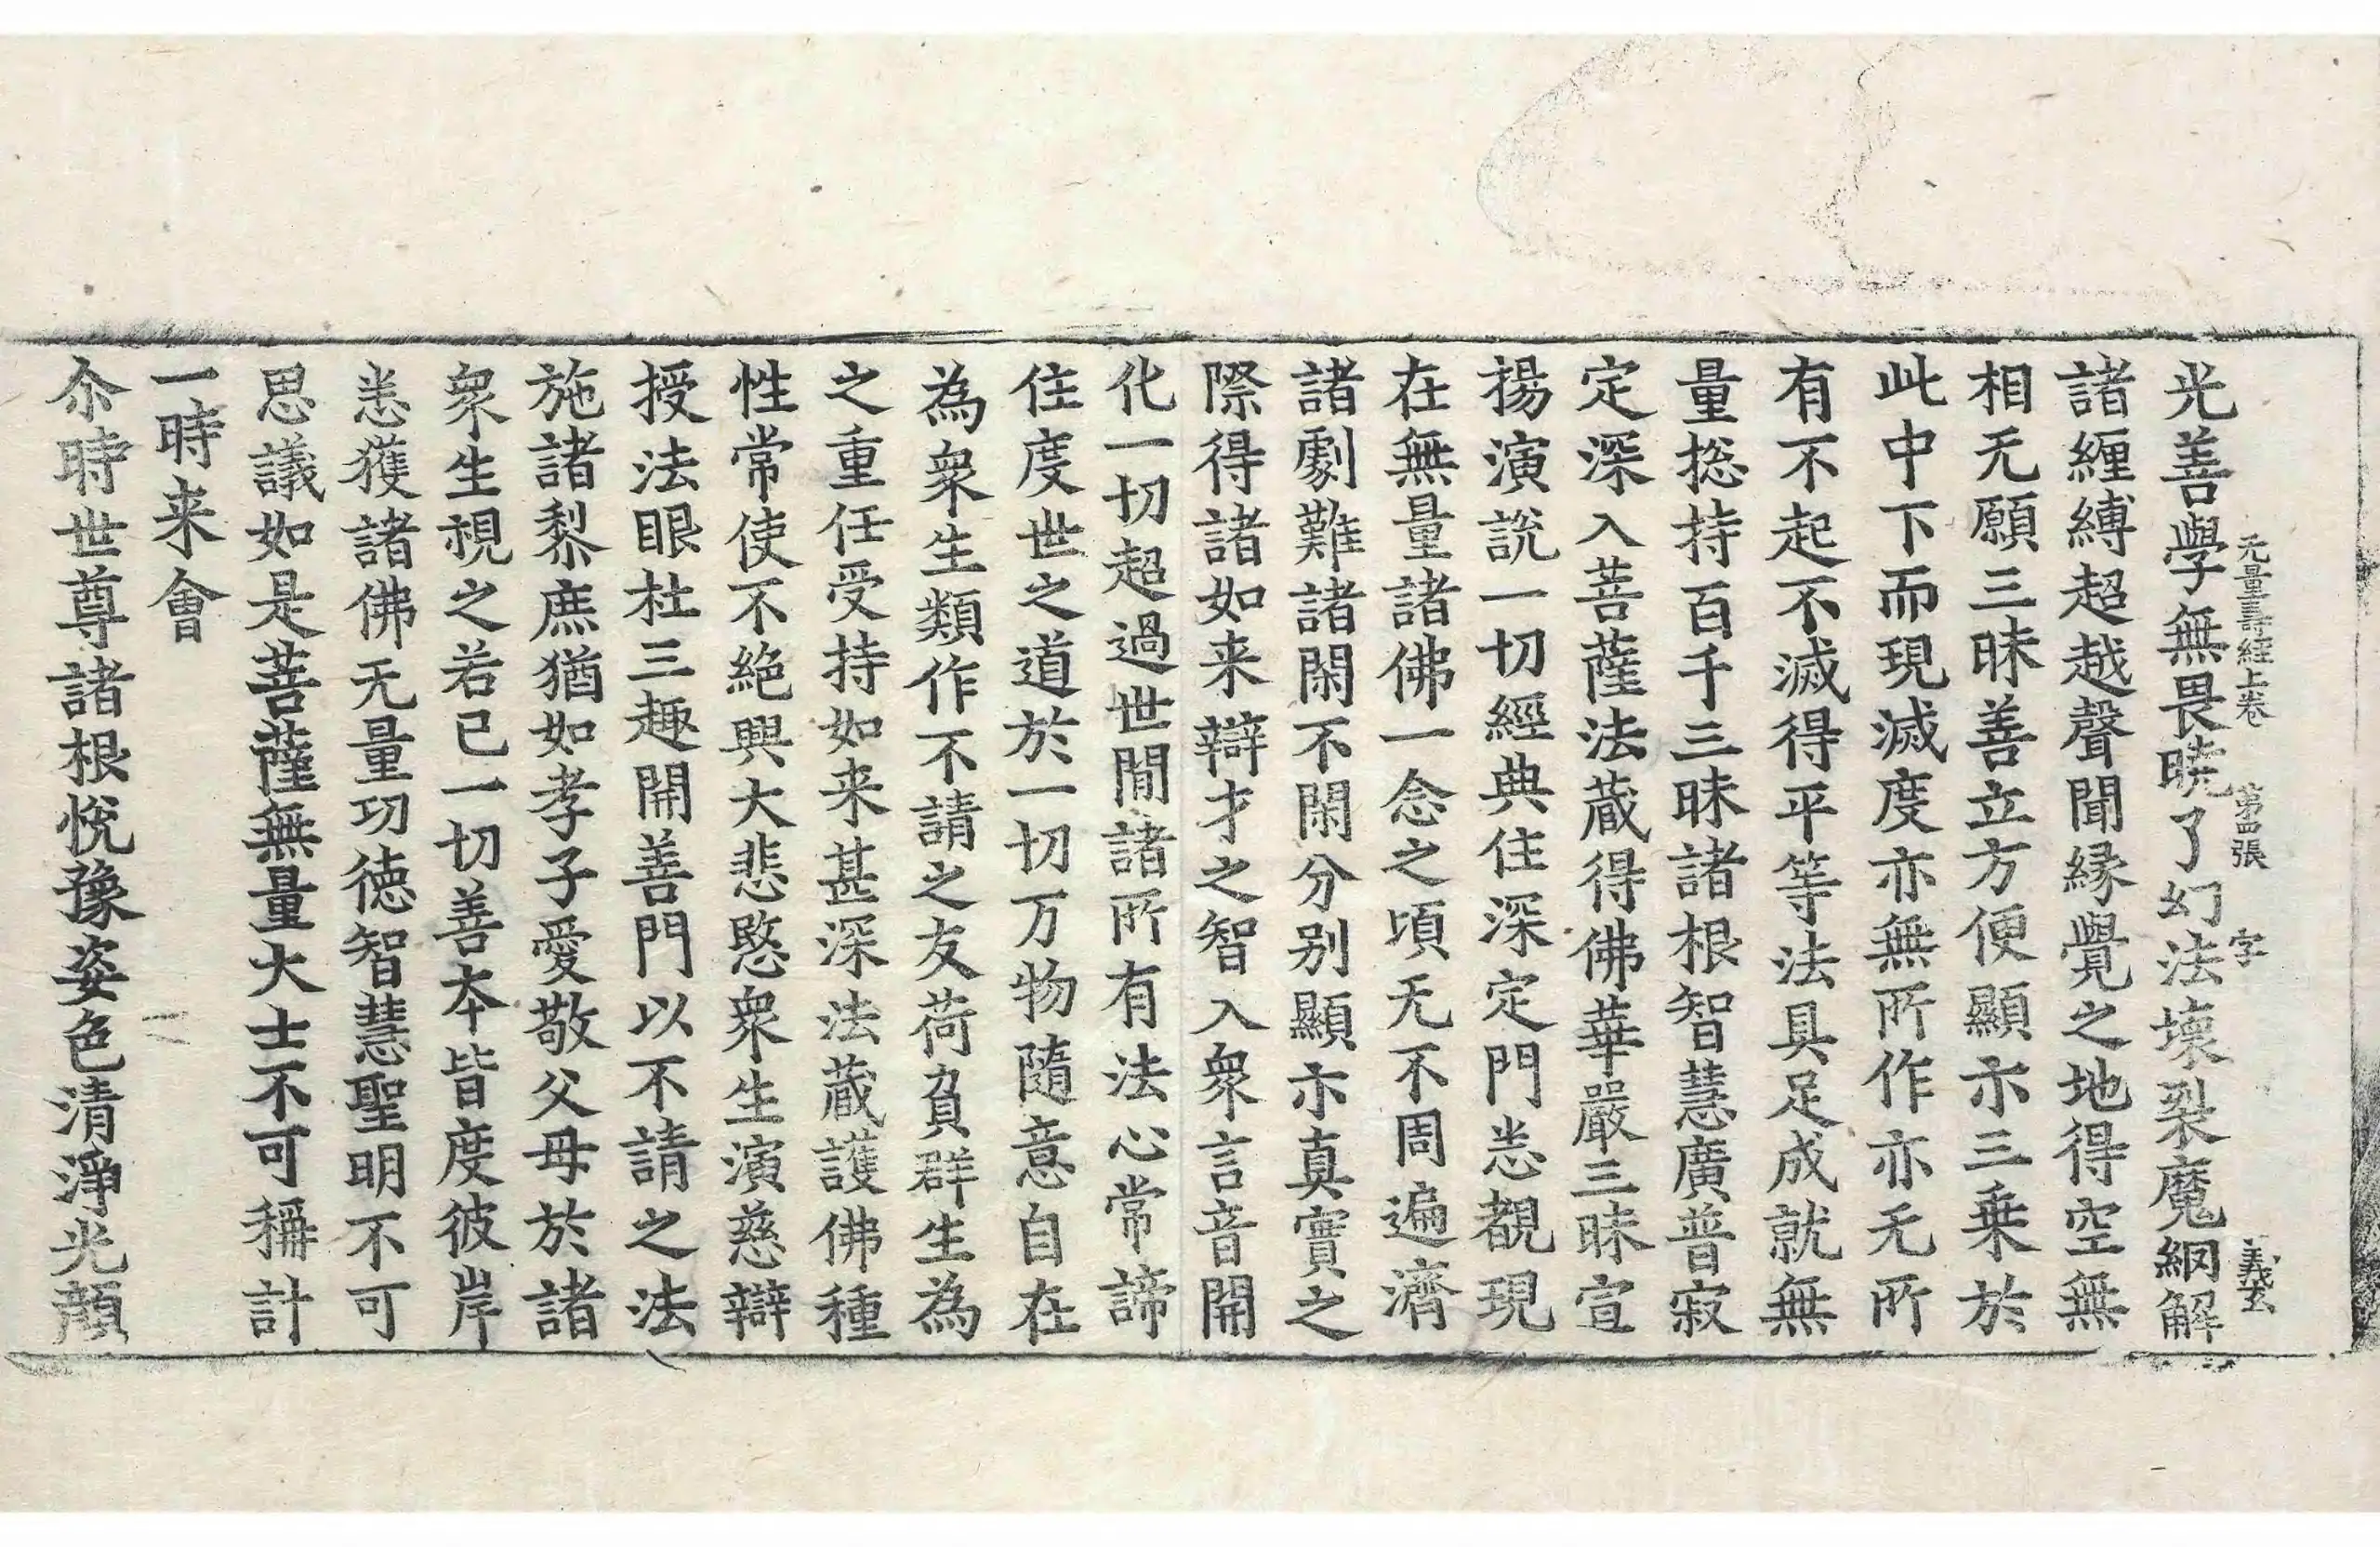 无量壽經上卷 第四張 字 義玄
光善學無畏曉了幻法壞裂魔網解
諸纒縛超越聲聞緣覺之地得空無
相无願三昧善立方便顯示三乗於
此中下而現滅度亦無所作亦无所
有不起不滅得平等法具足成就無
量捴持百千三昧諸根智慧廣普寂
定深入菩薩法蔵得佛華嚴三昧宣
揚演說一切經典住深定門悉覩現
在無量諸佛一念之頃无不周遍濟
諸劇難諸閑不閑分别顯示真實之
際得諸如来辯才之智入衆言音開
化一切超過世閒諸所有法心常諦
住度世之道於一切万物隨意自在
為衆生類作不請之友荷負群生為
之重任受持如来甚深法蔵護佛種
性常使不絕興大悲愍衆生演慈辯
授法眼杜三趣開善門以不請之法
施諸黎庶猶如孝子愛敬父母於諸
衆生視之若已一切善本皆度彼岸
悉獲諸佛无量功徳智慧聖明不可
思議如是菩薩無量大士不可稱計
一時来會
尒時世尊諸根悅豫姿色清淨光顔